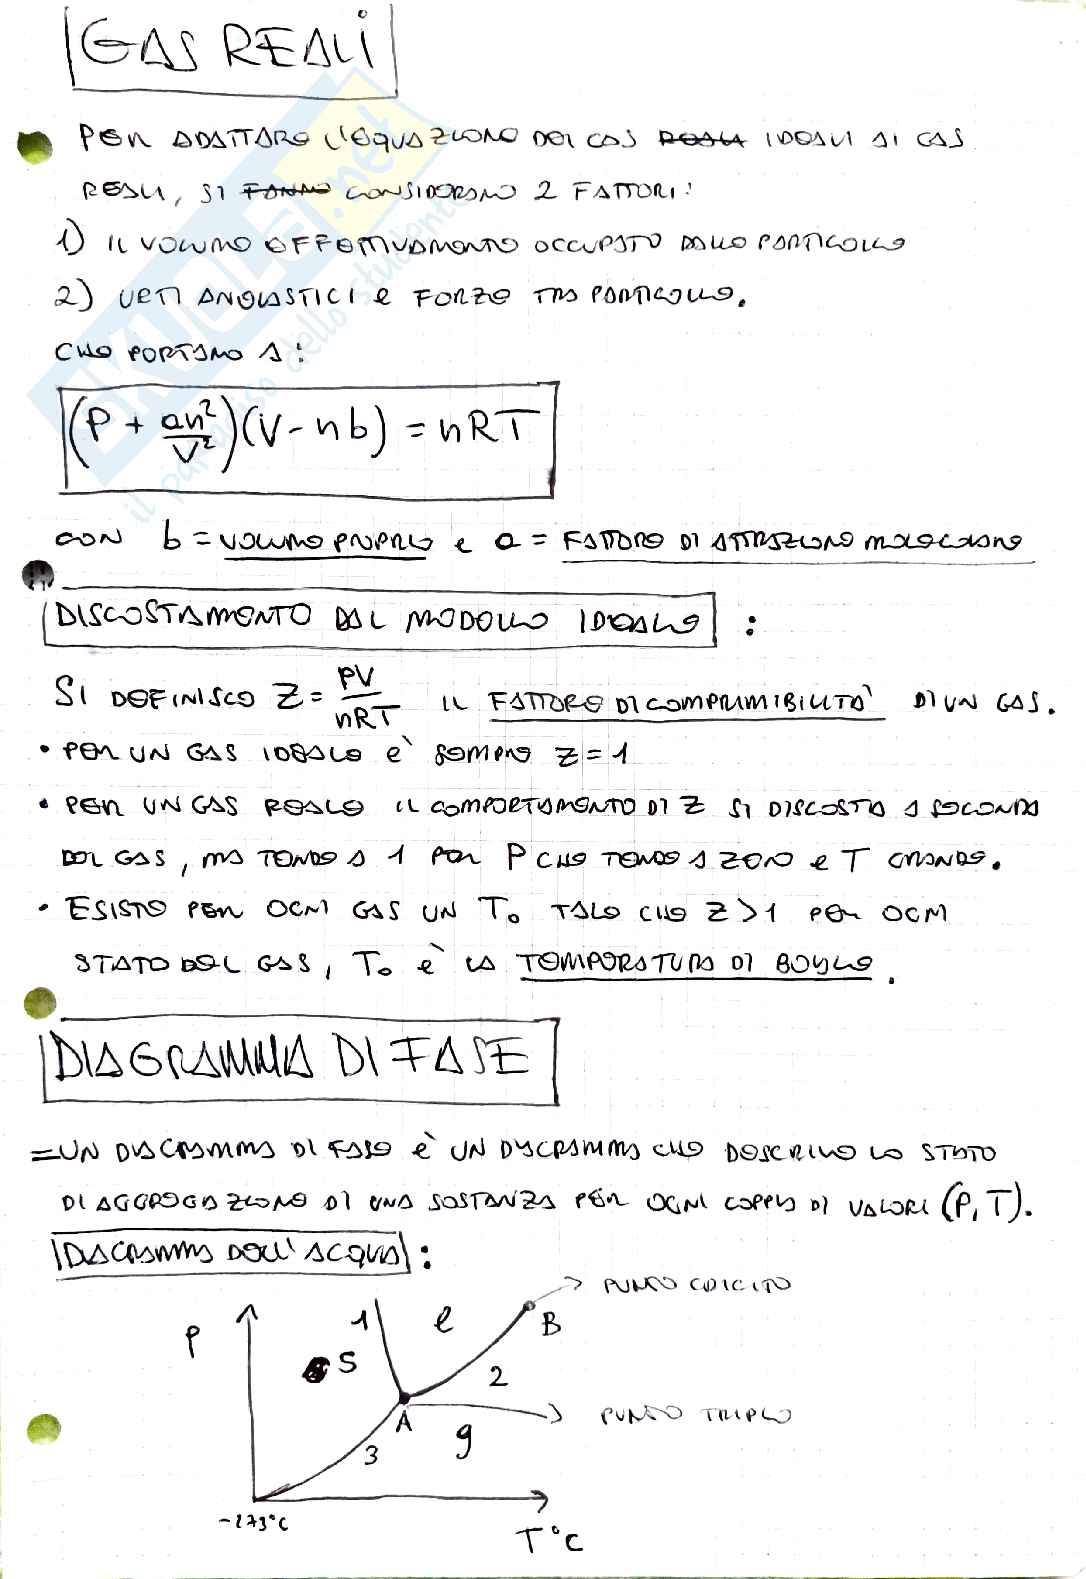 GAS REALI
PER ADATTARE L'EQUAZIONE DEI GAS REALI IDEALI AI GAS
REALI, SI FANNO CONSIDERANO 2 FATTORI:
1) IL VOLUME EFFETTIVAMENTE OCCUPATO DALLE PARTICELLE
2) URTI ANELASTICI e FORZE TRA PARTICELLE.
CHE PORTANO A:
(P + an²/V²)(V - nb) = nRT
CON b = VOLUME PROPRIO e a = FATTORE DI ATTRAZIONE MOLECOLARE
DISCOSTAMENTO DAL MODELLO IDEALE :
SI DEFINISCE Z = PV/nRT IL FATTORE DI COMPRIMIBILITA' DI UN GAS.
• PER UN GAS IDEALE E' SEMPRE Z = 1
• PER UN GAS REALE IL COMPORTAMENTO DI Z SI DISCOSTA A SECONDA
DEL GAS, MA TENDE A 1 PER P CHE TENDE A ZERO e T GRANDE.
• ESISTE PER OGNI GAS UN T₀ TALE CHE Z > 1 PER OGNI
STATO DEL GAS, T₀ È LA TEMPERATURA DI BOYLE.
DIAGRAMMA DI FASE
= UN DIAGRAMMA DI FASE È UN DIAGRAMMA CHE DESCRIVE LO STATO
DI AGGREGAZIONE DI UNA SOSTANZA PER OGNI COPPIA DI VALORI (P, T).
DIAGRAMMA DELL'ACQUA :
PUNTO CRITICO
P 1 l B
S 2
A PUNTO TRIPLO
3 g
-273°C
T°C
SKUOLA.net
il paradiso dello studente